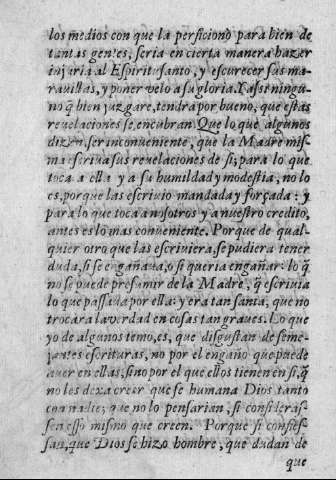 los medios con que la perficionò para bien de
tantas gentes, seria en cierta manera hazer
injuria al Espiritu santo, y escurecer sus ma-
rauillas, y poner velo a su gloria. Y assi ningu-
no q̃ bien juzgare, tendra por bueno, que estas
reuelaciones se encubran. Que lo que algunos
dizen, ser inconueniente, que la Madre mis-
ma scriua sus reuelaciones de si; para lo que
toca a ella y a su humildad y modestia, no lo
es, porque las escriuio mandada y forçada: y
para lo que toca a nosotros y a nuestro credito,
antes es lo mas conueniente. Porque de qual-
quier otro que las escriuiera, se pudiera tener
duda, si se engañaua, o si queria engañar: lo q̃
no se puede presumir de la Madre, q̃ escriuia
lo que passaua por ella: y era tan santa, que no
trocara la verdad en cosas tan graues. Lo que
yo de algunos temo, es, que disgustan de seme-
jantes escrituras, no por el engaño que puede
auer en ellas, sino por el que ellos tienen en si, q̃
no les dexa creer que se humana Dios tanto
con nadie; que no lo pensarian, si consideras-
sen esso mismo que creen. Porque si confies-
san, que Dios se hizo hombre, que dudan de
que